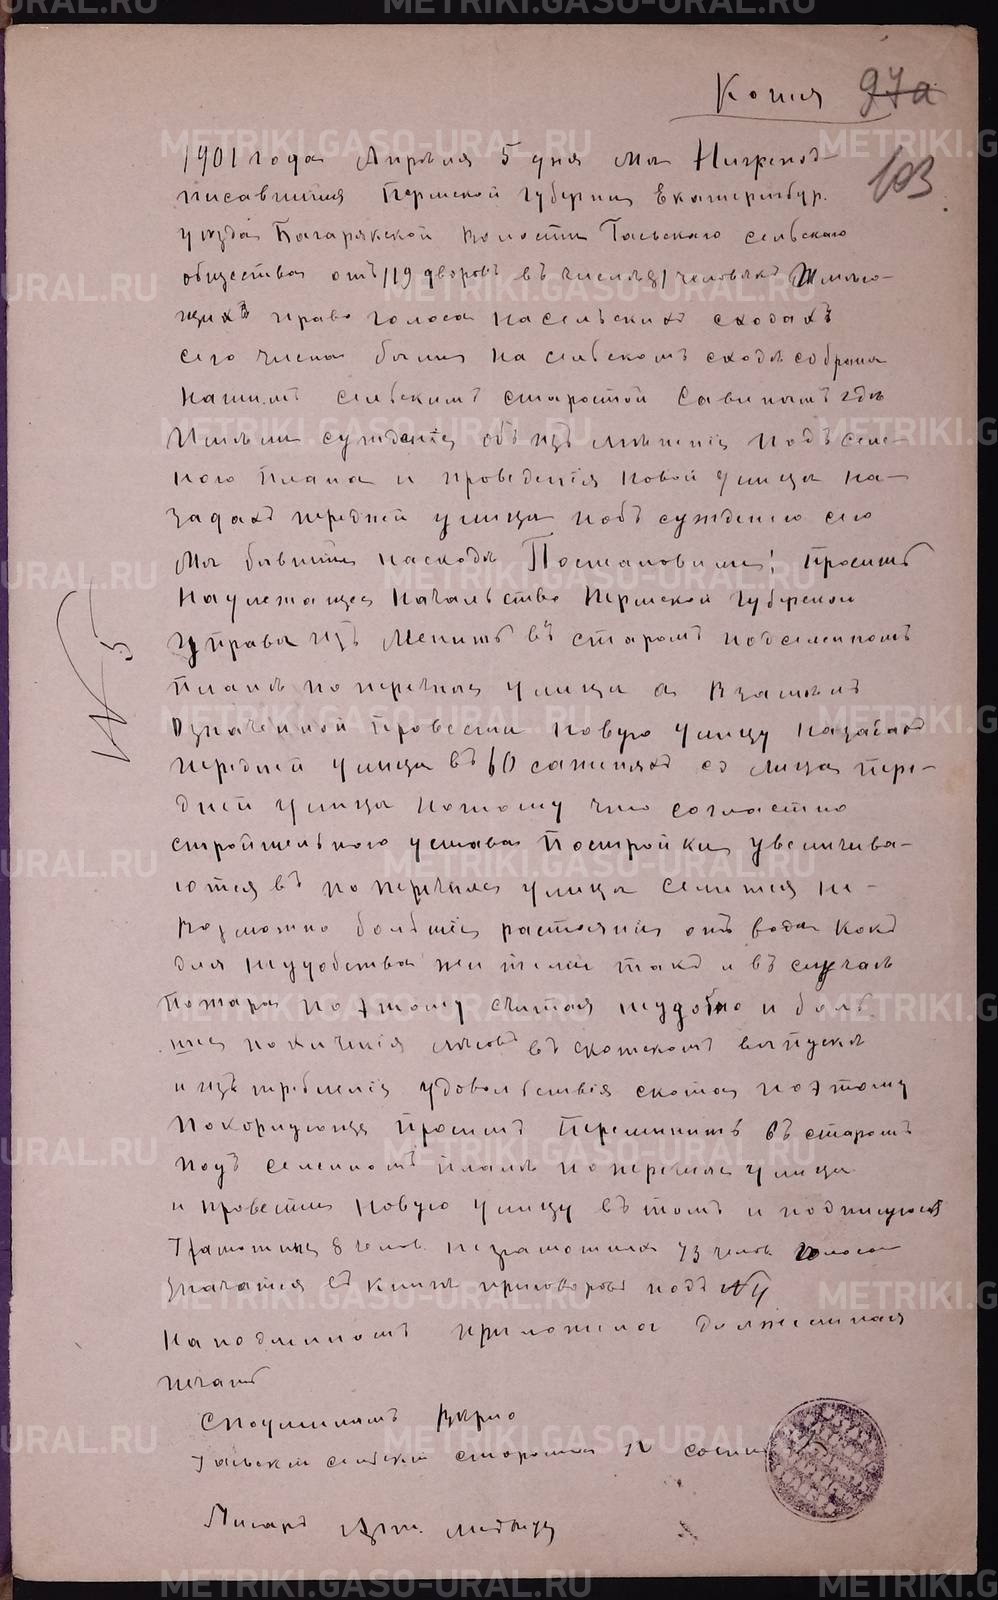 Копия 97а
103
1901 года Апреля 5 дня Мы Нижепод-
писавшиися Пермской Губернии Екатеринбур.
уезда Багарякской Волости Гаевскаго сельскаго
общества отъ 119 дворовъ въ числе 81 человекъ Имею-
щихъ право голоса на сельскихъ сходахъ
сего числа были на сельскомъ сходе собраны
нашимъ сельскимъ старостой Савинымъ где
Имели суждение объ изъ менении подъ селе-
ного плана и проведения новой улицы на
задахъ передней улицы побъ суждению сего
Мы бывшии на сходе Постановили! просить
Надлежащее Начальство Пермской Губернской
управы изъ Менить въ старомъ подселенномъ
плане поперечныя улицы а взаменъ
означенной провести новую улицу на задахъ
передней улицы въ 60 саженяхъ съ лица пере-
дней улицы потому что согластно
стройтельного устава Постройки увеличива-
ются въ поперечныя улицы селится не-
возможно большее растояние отъ воды какъ
для неудобства жителей такъ и въ случае
пожара поэтому считая неудобно и боль-
шие похищения лесовъ въ скотскомъ выпуске
и изъ требления удовольствия скота поэтому
Покорнующе просимъ Переминить въ старомъ
подъ селенномъ плане поперечные улицы
и провести новую улицу въ томъ и подписуемся
Грамотных 8 челов. неграмотныхъ 73 челов. голоса
значатся въ книге приговоровъ подъ №4
На подлинномъ приложена должностная
печать
Сподлинымъ Верно
Гаевский сельский староста
Писарь
METRIKI.GASO-URAL.RU